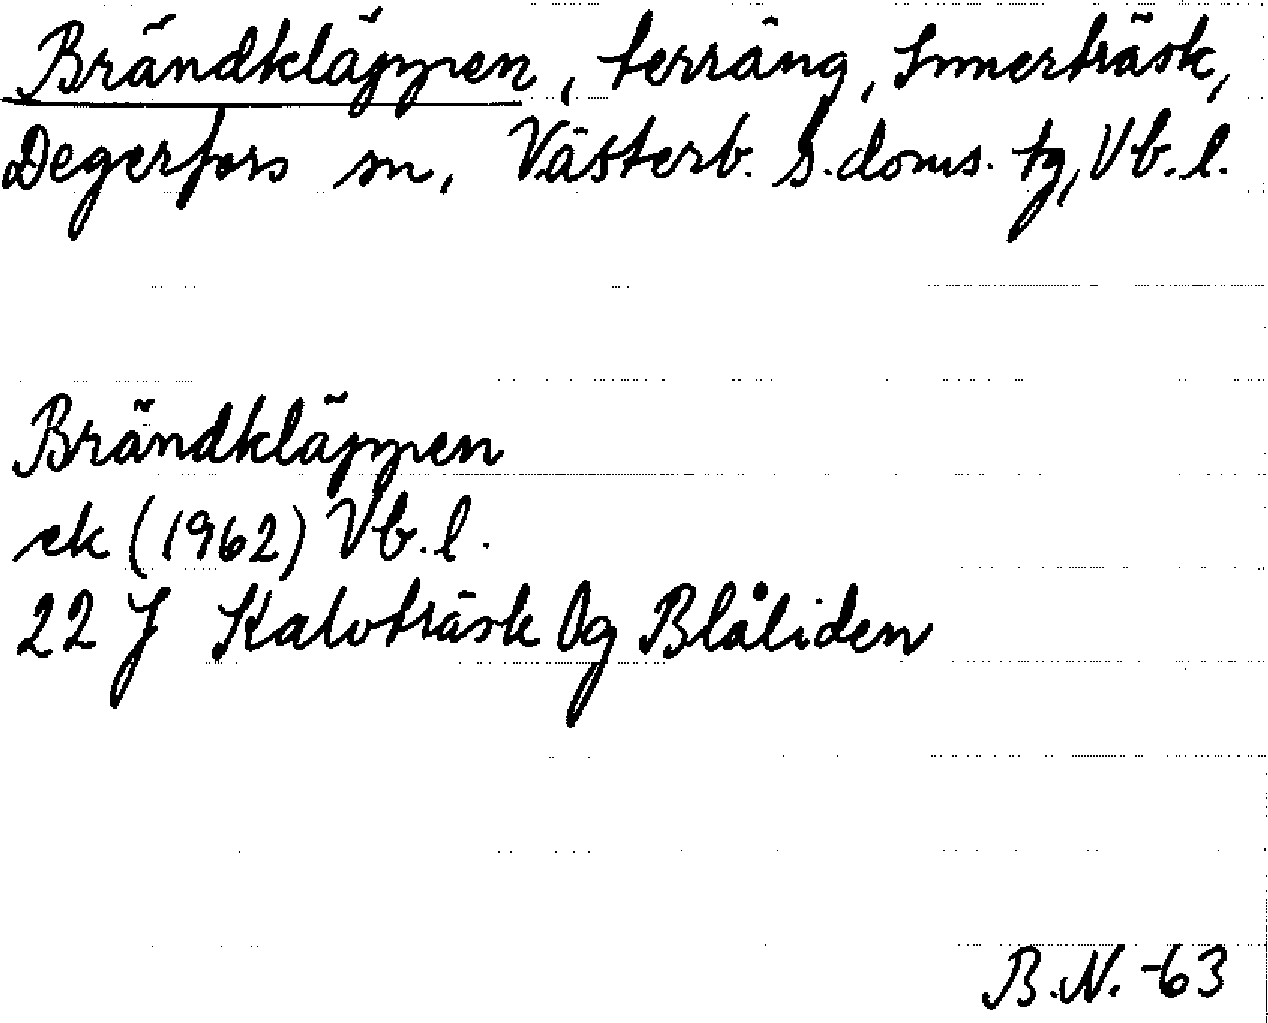 Brändkläppen, terräng, Innerträsk,
Degerfors sn, Västerb. s. doms. tg, Vb. l.
Brändkläppen
ek (1962) Vb. l.
22 J Kalvträsk 0g Blåliden
B.N. -63